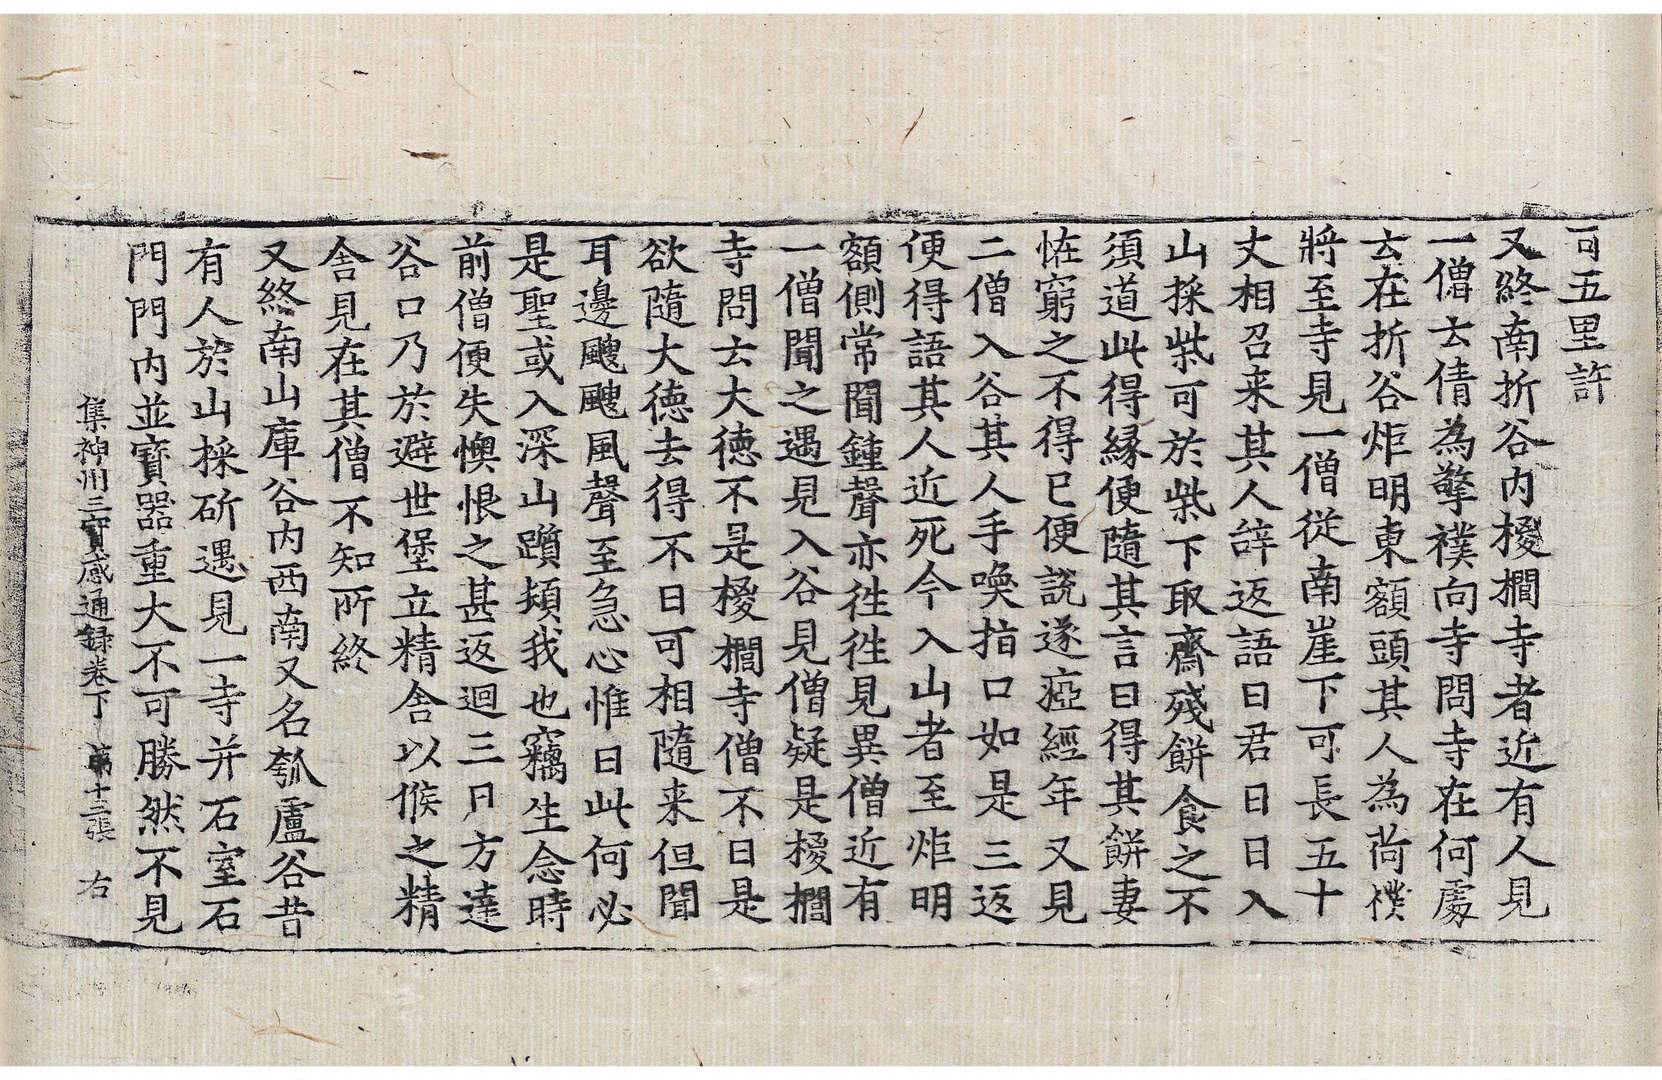 可五里許
又終南折谷内椶櫚寺者近有人見
一僧云倩為擎襆向寺問寺在何處
云在折谷炬明東額頭其人為荷襆
將至寺見一僧從南崖下可長五十
丈相召来其人辝返語曰君日日入
山採柴可於柴下取齋殘餅食之不
須道此得縁便隨其言日得其餅妻
恠窮之不得已便說遂瘂經年又見
二僧入谷其人手喚指口如是三返
便得語其人近死今入山者至炬明
額側常聞鍾聲亦徃徃見異僧近有
一僧聞之遇見入谷見僧疑是椶櫚
寺問云大徳不是椶櫚寺僧不曰是
欲隨大徳去得不曰可相隨来但聞
耳邊颼颼風聲至急心惟曰此何必
是聖或入深山躓頓我也竊生念時
前僧便失懊恨之甚返迴三日方達
谷口乃於避世堡立精舍以候之精
舍見在其僧不知所終
又終南山庫谷内西南又名瓠盧谷昔
有人於山採斫遇見一寺并石室石
門門内並寶器重大不可勝然不見
集神州三寶感通録卷下　苐十二張　右